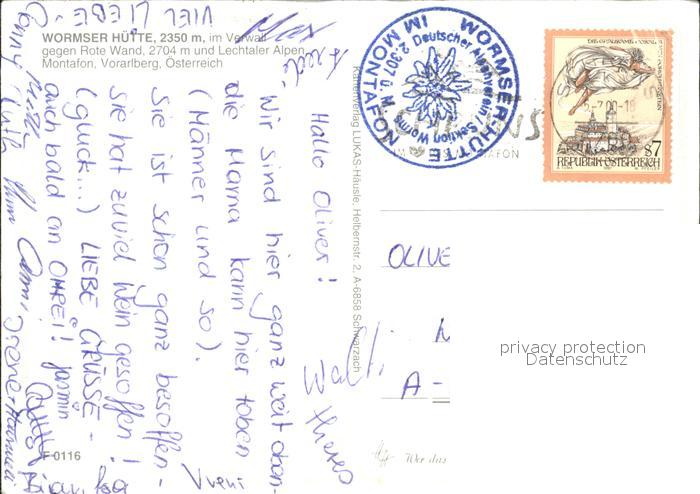 WORMSER HÜTTE, 2350 m, im Verwall
gegen Rote Wand, 2704 m und Lechtaler Alpen,
Montafon, Vorarlberg, Österreich
VIEL LIEBE-
Hallo Oliver!
Wir sind hier ganz weit oben-
die Mama kann hier toben
(Männer und so).
Sie ist schon ganz besoffen-
Sie hat zuviel Wein gesoffen!
(gluck...) LIEBE GRÜSSE-
auch bald an OMREI! Jasmin
Conny
Walti
Theres
Vreni
F 0116
Kartenverlag LUKAS-Häusle, Helbernstr. 2, A-6858 Schwarzach
WORMSER-HÜTTE
IM MONTAFON
Deutscher Alpenverein Sektion Worms
2.307 ü. M.
-7.00-18
REPUBLIK ÖSTERREICH
S7
1997
OLIVE
A-
Wer das
privacy protection
Datenschutz